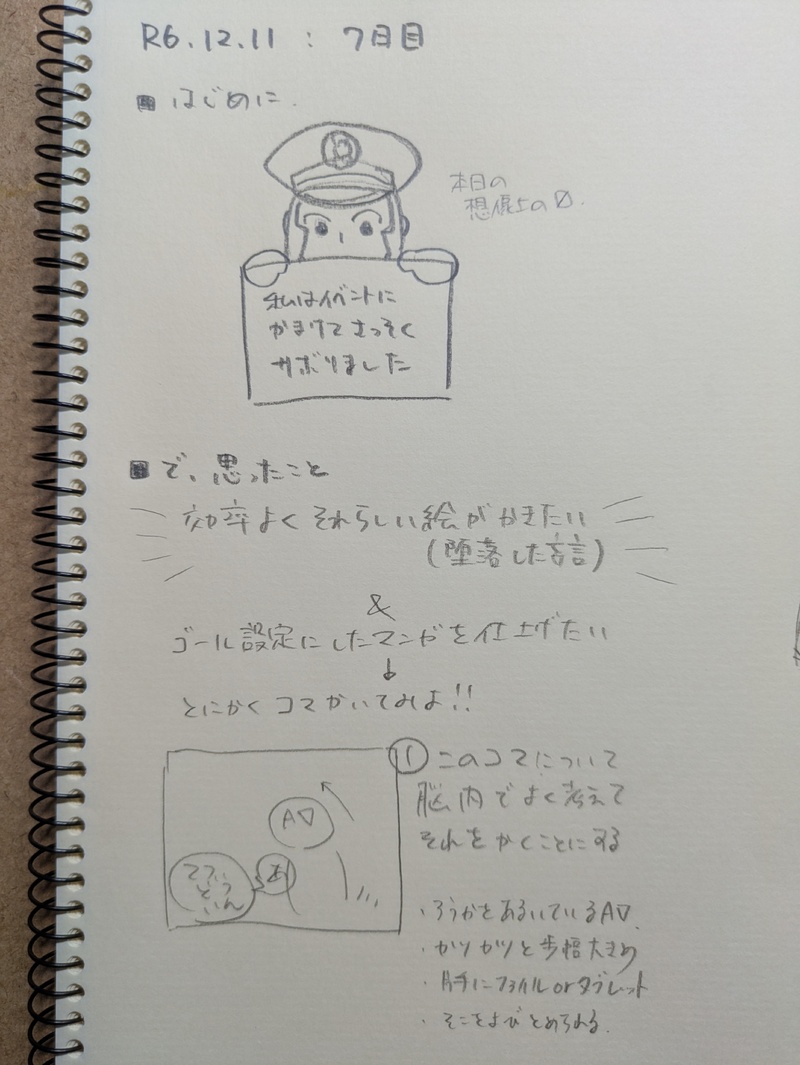 R6.12.11 : 7日目
■ はじめに.
本日の
想像上の
私はイベントに
かまけてさっそく
サボりました
■ で、思ったこと
効率よくそれらしい絵がかきたい
(堕落した言)
&
ゴール設定にしたマンガを仕上げたい
↓
とにかくコマかいてみよ!!
① このコマについて
脳内でよく考えて
それをかくことにする
A▽
あ
・ろうかをあるいているA▽.
・カツカツと歩幅大きめ
・片手にファイルorタブレット
・そこをよびとめられる.